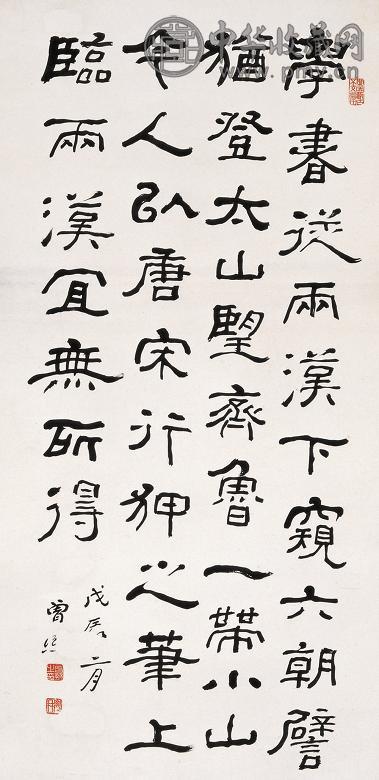 學書從兩漢下窺六朝譬
猶登太山望齊魯一帶小山
今人以唐宋行狎之筆上
臨兩漢宜無所得
戊辰二月
曾熙
中华收藏网
www.pmy.cn